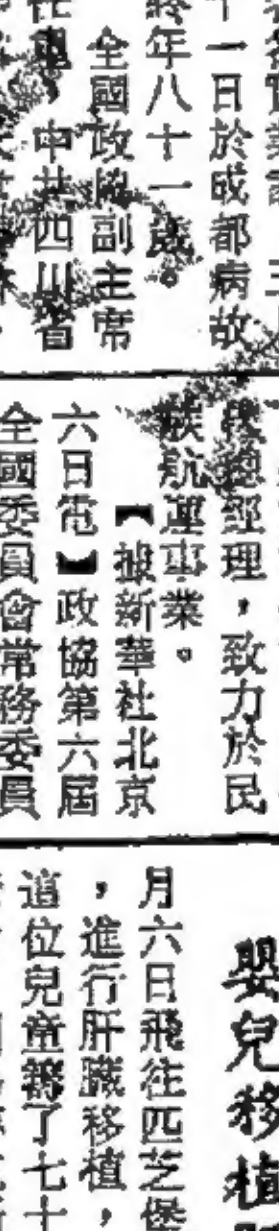 十一日於成都病故
終年八十一歲。
全國政協副主席
任白戈、中共四川省
後總經理，致力於民
族航運事業。
【據新華社北京
六日電】政協第六屆
全國委員會常務委員
嬰兒移植
月六日飛往匹芝堡
，進行肝臟移植，
這位兒童籌了七十